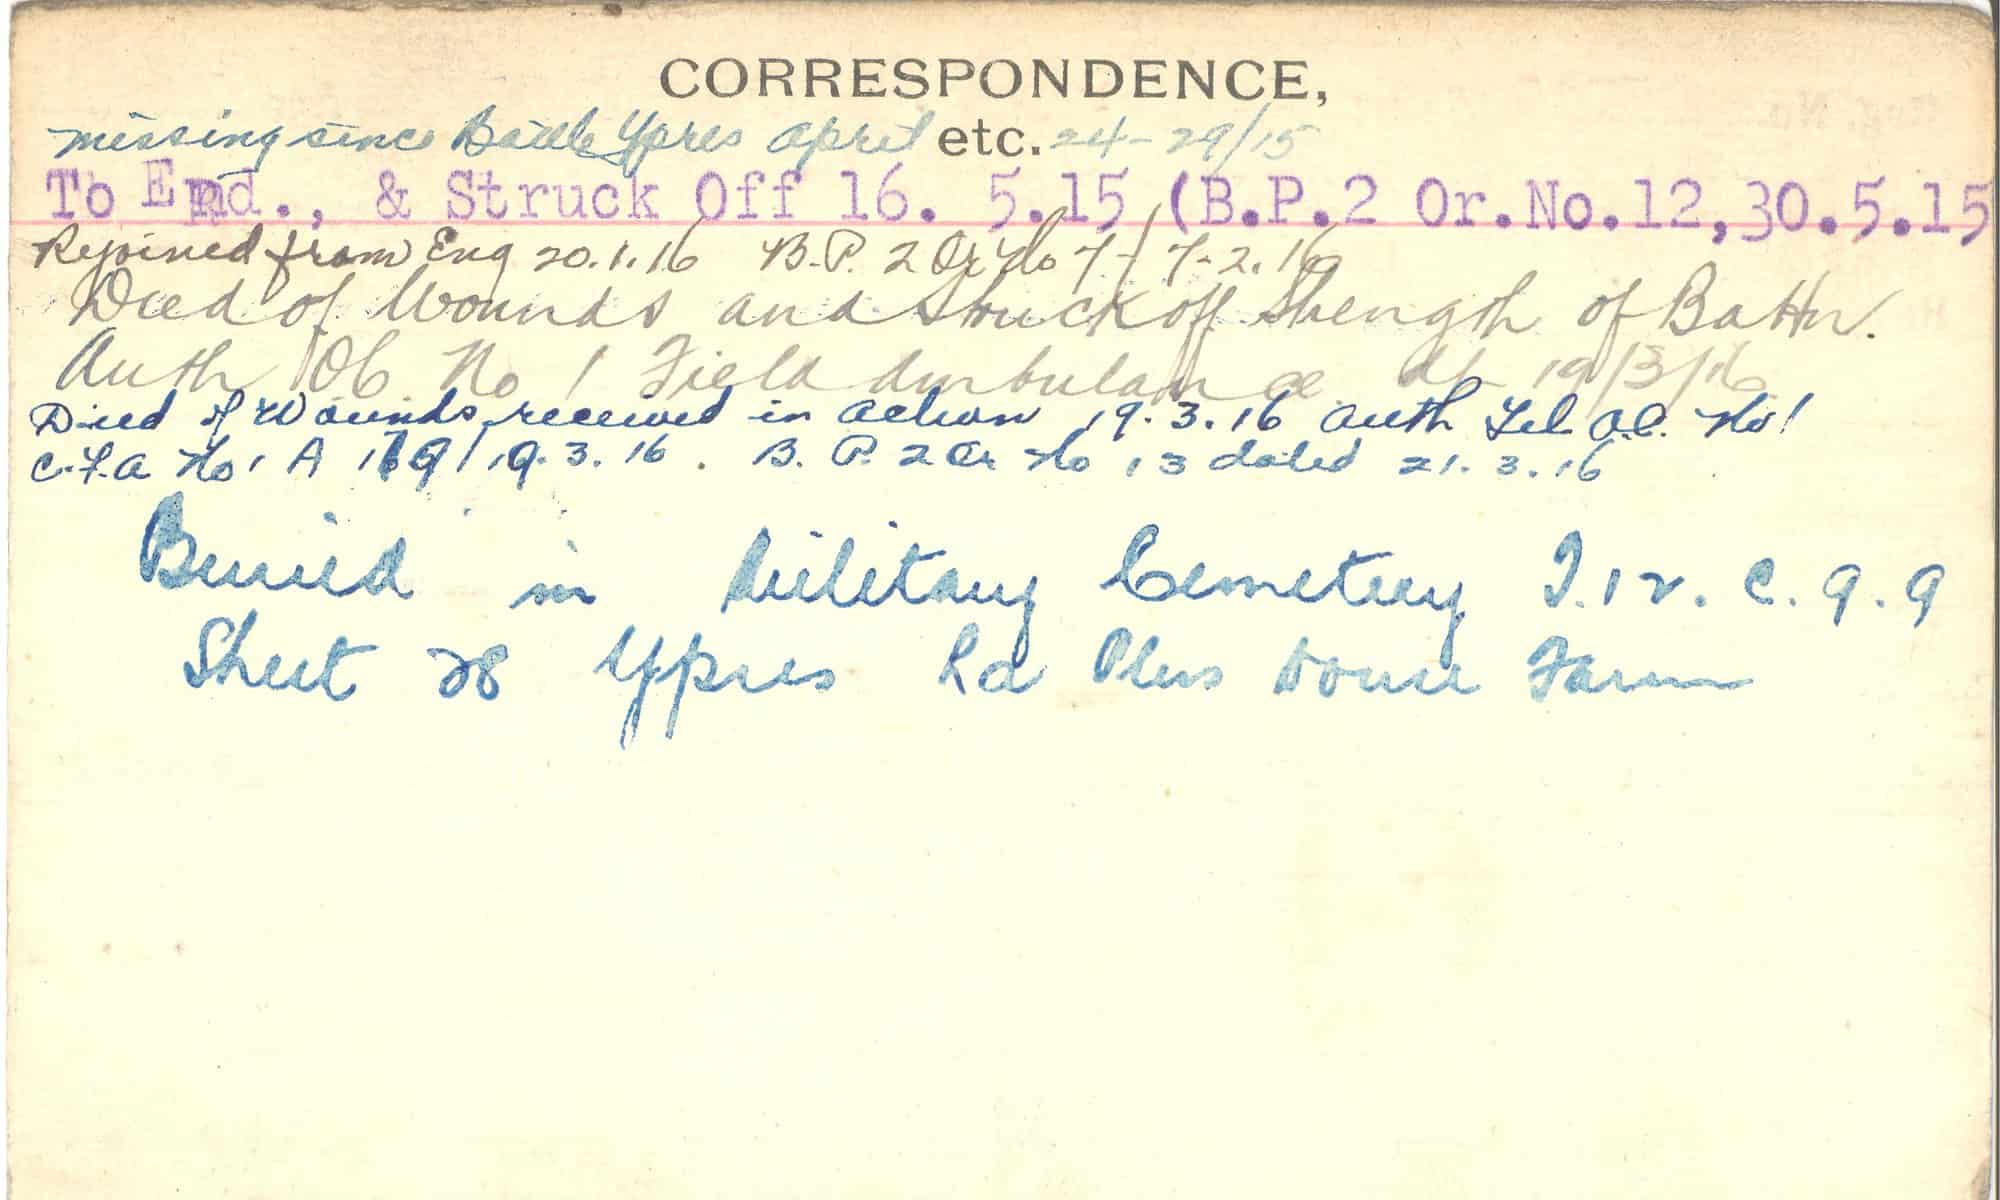 CORRESPONDENCE,
missing since Battle Ypres april etc. 24-29/15
To End., & Struck Off 16. 5.15 (B.P.2 Or.No.12,30.5.15
Rejoined from Eng 20.1.16 B.P. 2 Or No 7-/7-2.16
Died of Wounds and Struck off Strength of Battn.
Auth OC No 1 Field Ambulance dt 19/3/16
Died of Wounds received in action 19.3.16 auth Tel O.C. No1
C.F.A No 1 A 169/19.3.16. B.P. 2 Or No 13 dated 21.3.16
Buried in Military Cemetery I.12.C.9.9
Sheet 28 Ypres La Plus Douve Farm